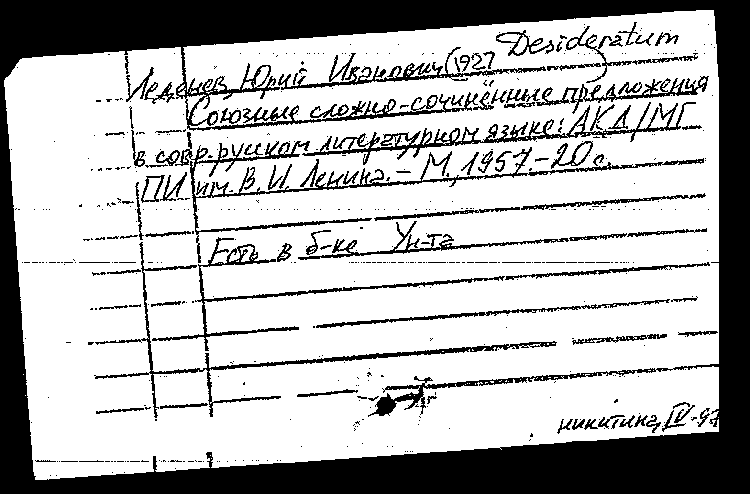 Desideratum
Леденев, Юрий Иванович (1927
Союзные сложно-сочинённые предложения
в совр. русском литературном языке: АКД/МГ
ПИ им. В. И. Ленина. – М., 1957. – 20 с.
Есть в б-ке Ун-та
никитина, IV-97